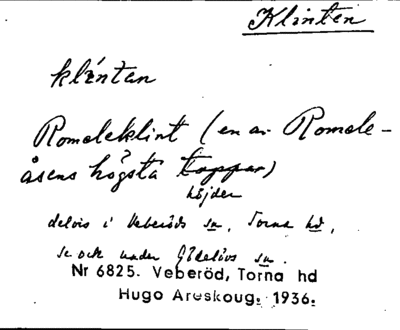 Klinten
klintan
Romeleklint (en av Romele-
åsens högsta toppar)
höjder
delvis i Veberöds sn, Torna hd,
se ock under Gödelövs sn.
Nr 6825. Veberöd, Torna hd
Hugo Areskoug. 1936.